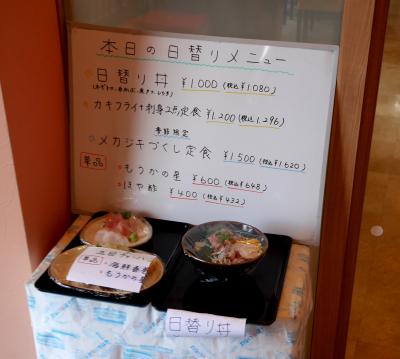 本日の日替りメニュー
日替り丼 ¥1000(税込¥1080)
カキフライ+刺身2点定食 ¥1,200(税込1,296)
季節限定
メカジキづくし定食 ¥1500(税込¥1620)
単品
・もうかの星 ¥600(税込¥648)
・ほや酢 ¥400(税込¥432)
単品
・もうかの星
日替り丼